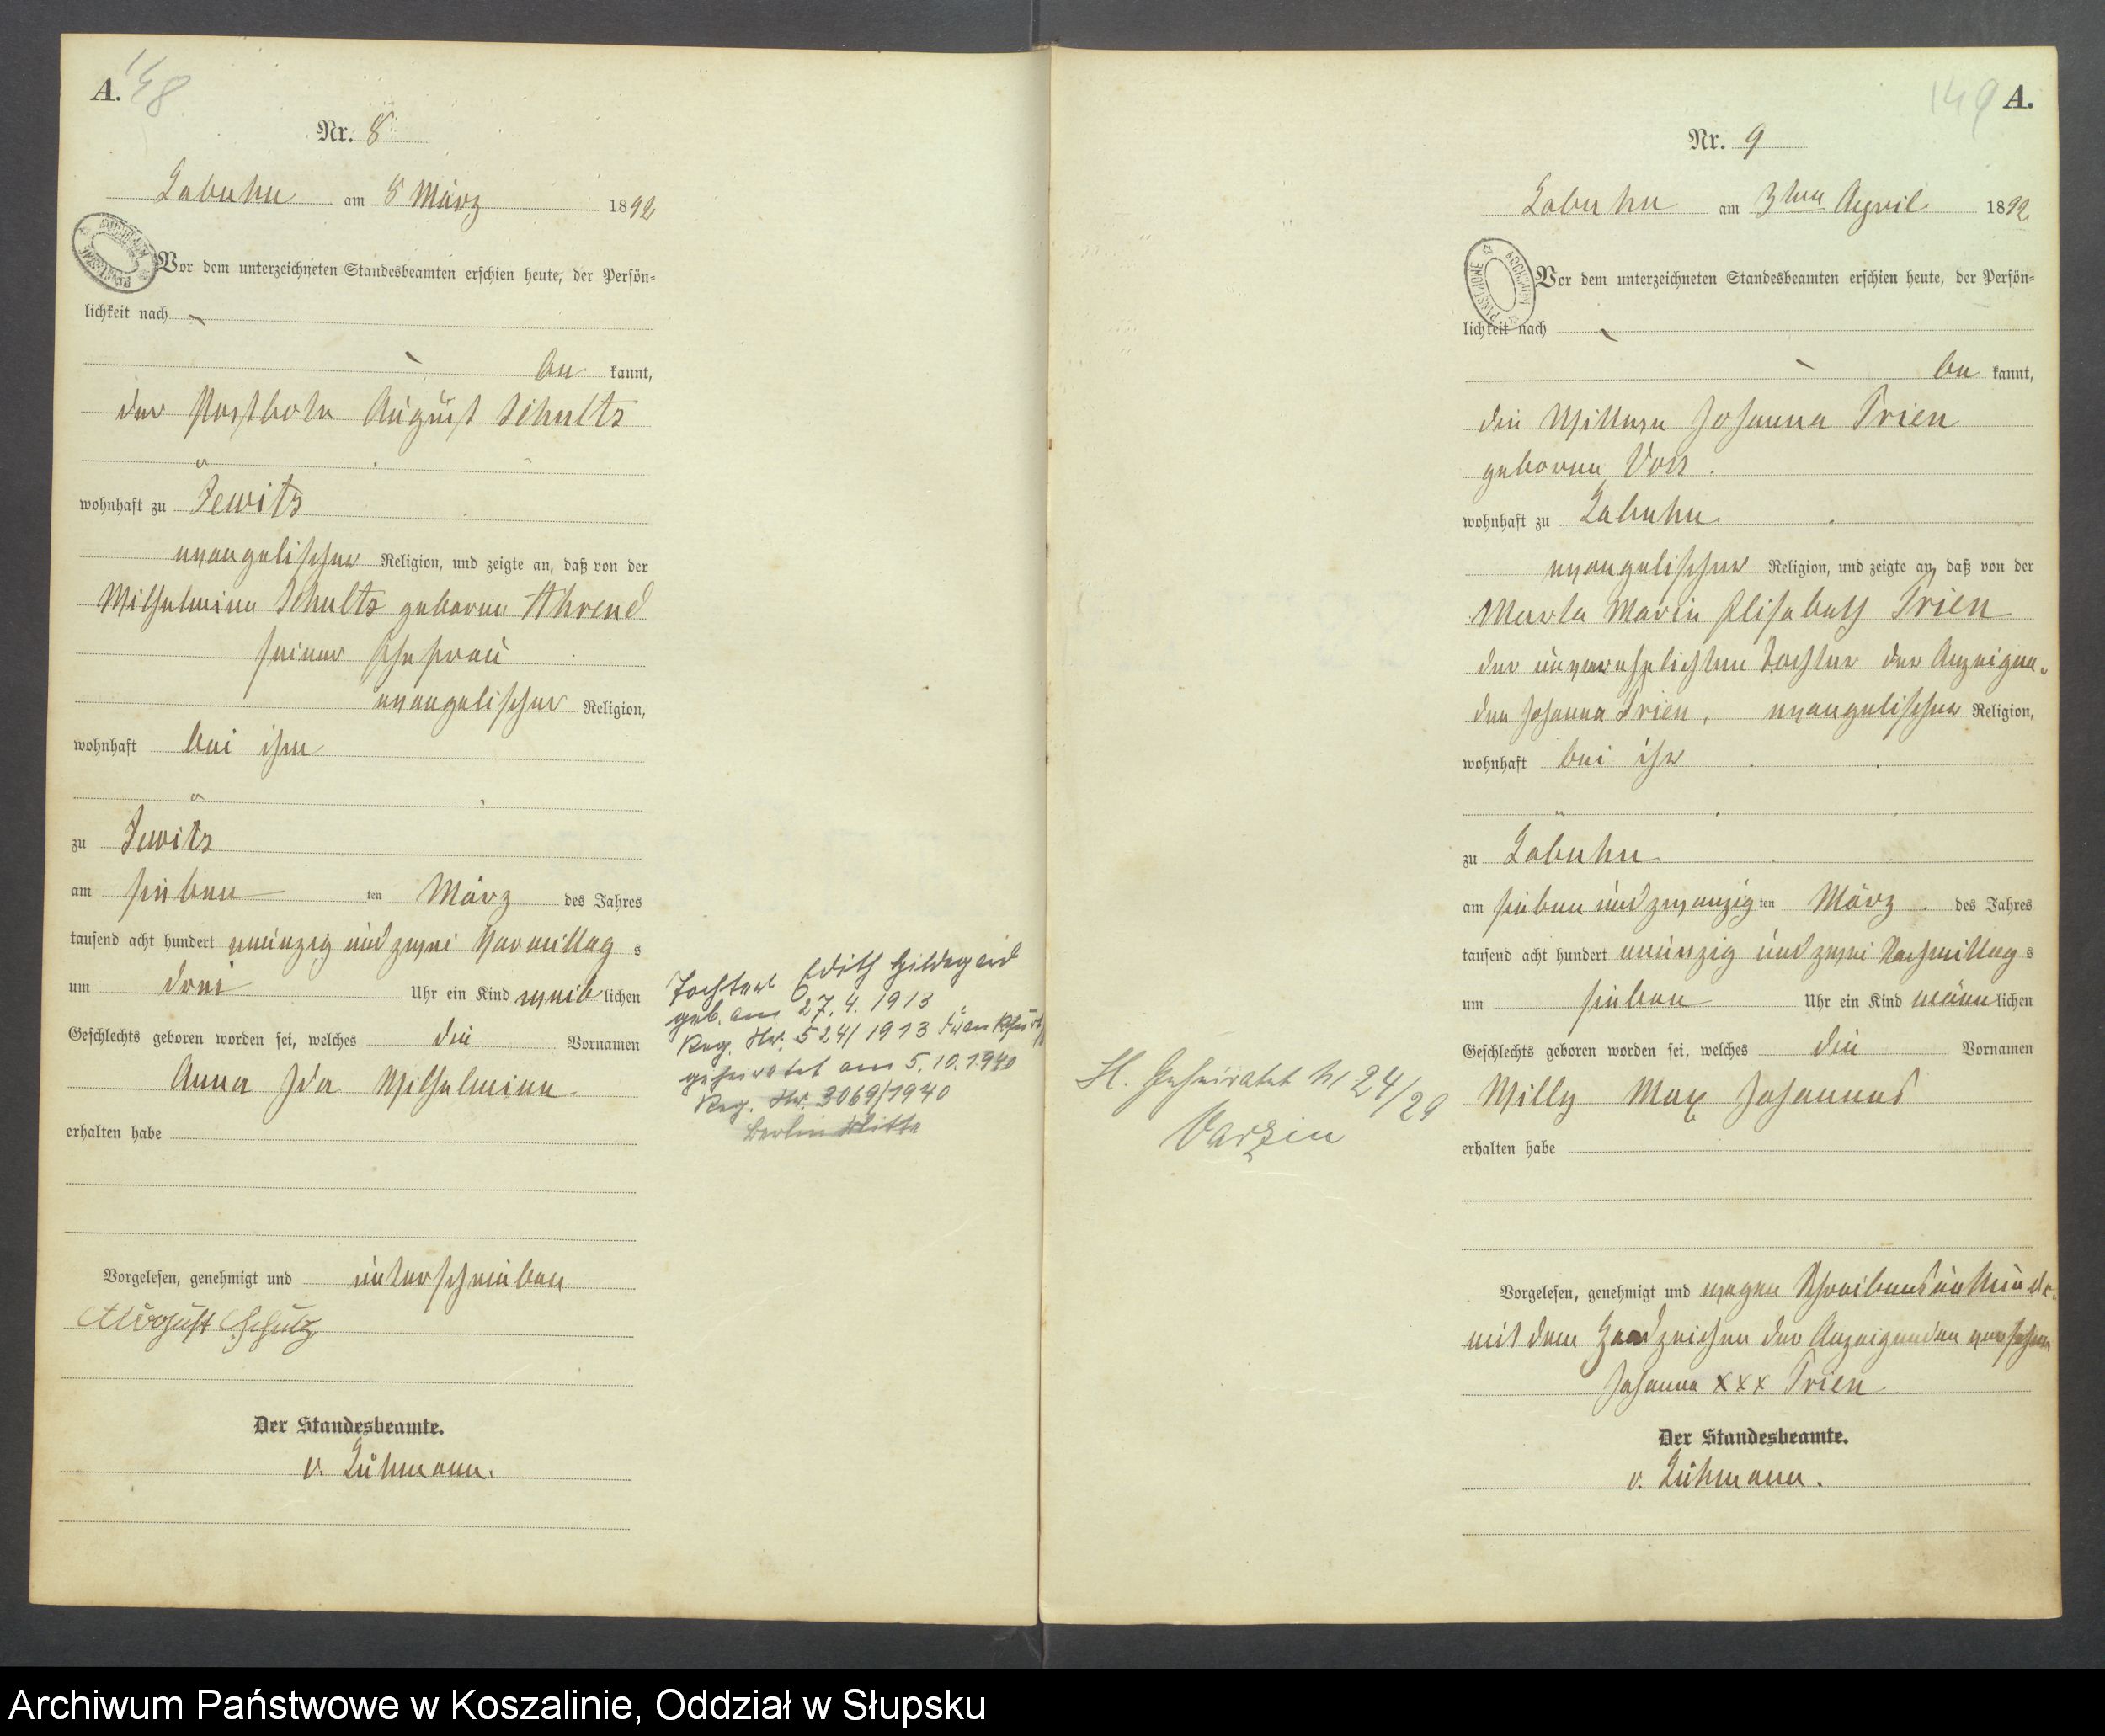 A. 148
Nr. 8
Labuhn am 8 März 1892
Vor dem unterzeichneten Standesbeamten erschien heute, der Persön-
lichkeit nach
be kannt,
der Postbote August Schultz
wohnhaft zu Jewitz
evangelischer Religion, und zeigte an, daß von der
Wilhelmine Schultz geborne Ahrend
seiner Ehefrau
evangelischer Religion,
wohnhaft bei ihm
zu Jewitz
am sieben ten März des Jahres
tausend acht hundert neunzig und zwei Vormittag s
um drei Uhr ein Kind weib lichen
Geschlechts geboren worden sei, welches die Vornamen
Anna Ida Wilhelmine
erhalten habe
Vorgelesen, genehmigt und unterschrieben
August Schulz
Der Standesbeamte.
v. Lühmann.
Tochter Edith Hildegard
geb. am 27.4.1913
Reg. Nr. 524/1913
geheiratet am 5.10.1940
Reg. Nr. 3069/1940
Berlin Mitte
149 A.
Nr. 9
Labuhn am 3ten April 1892
ARCHIWUM PAŃSTWOWE
Vor dem unterzeichneten Standesbeamten erschien heute, der Persön-
lichkeit nach
be kannt,
die Wittwe Johanna Trien
geborne Voss.
wohnhaft zu Labuhn
evangelischer Religion, und zeigte an, daß von der
Marta Marie Elisabeth Trien
der unverehelichten Tochter der Anzeigen-
den Johanna Trien, evangelischer Religion,
wohnhaft bei ihr
zu Labuhn
am sieben und zwanzig ten März des Jahres
tausend acht hundert neunzig und zwei Nachmittag s
um sieben Uhr ein Kind männ lichen
Geschlechts geboren worden sei, welches die Vornamen
Willy Max Johannes
erhalten habe
Vorgelesen, genehmigt und wegen Schreibensunkunde
mit dem Handzeichen der Anzeigenden versehen
Johanna xxx Trien
Der Standesbeamte.
v. Lühmann.
H. Geheiratet 24/29
Varzin
Archiwum Państwowe w Koszalinie, Oddział w Słupsku